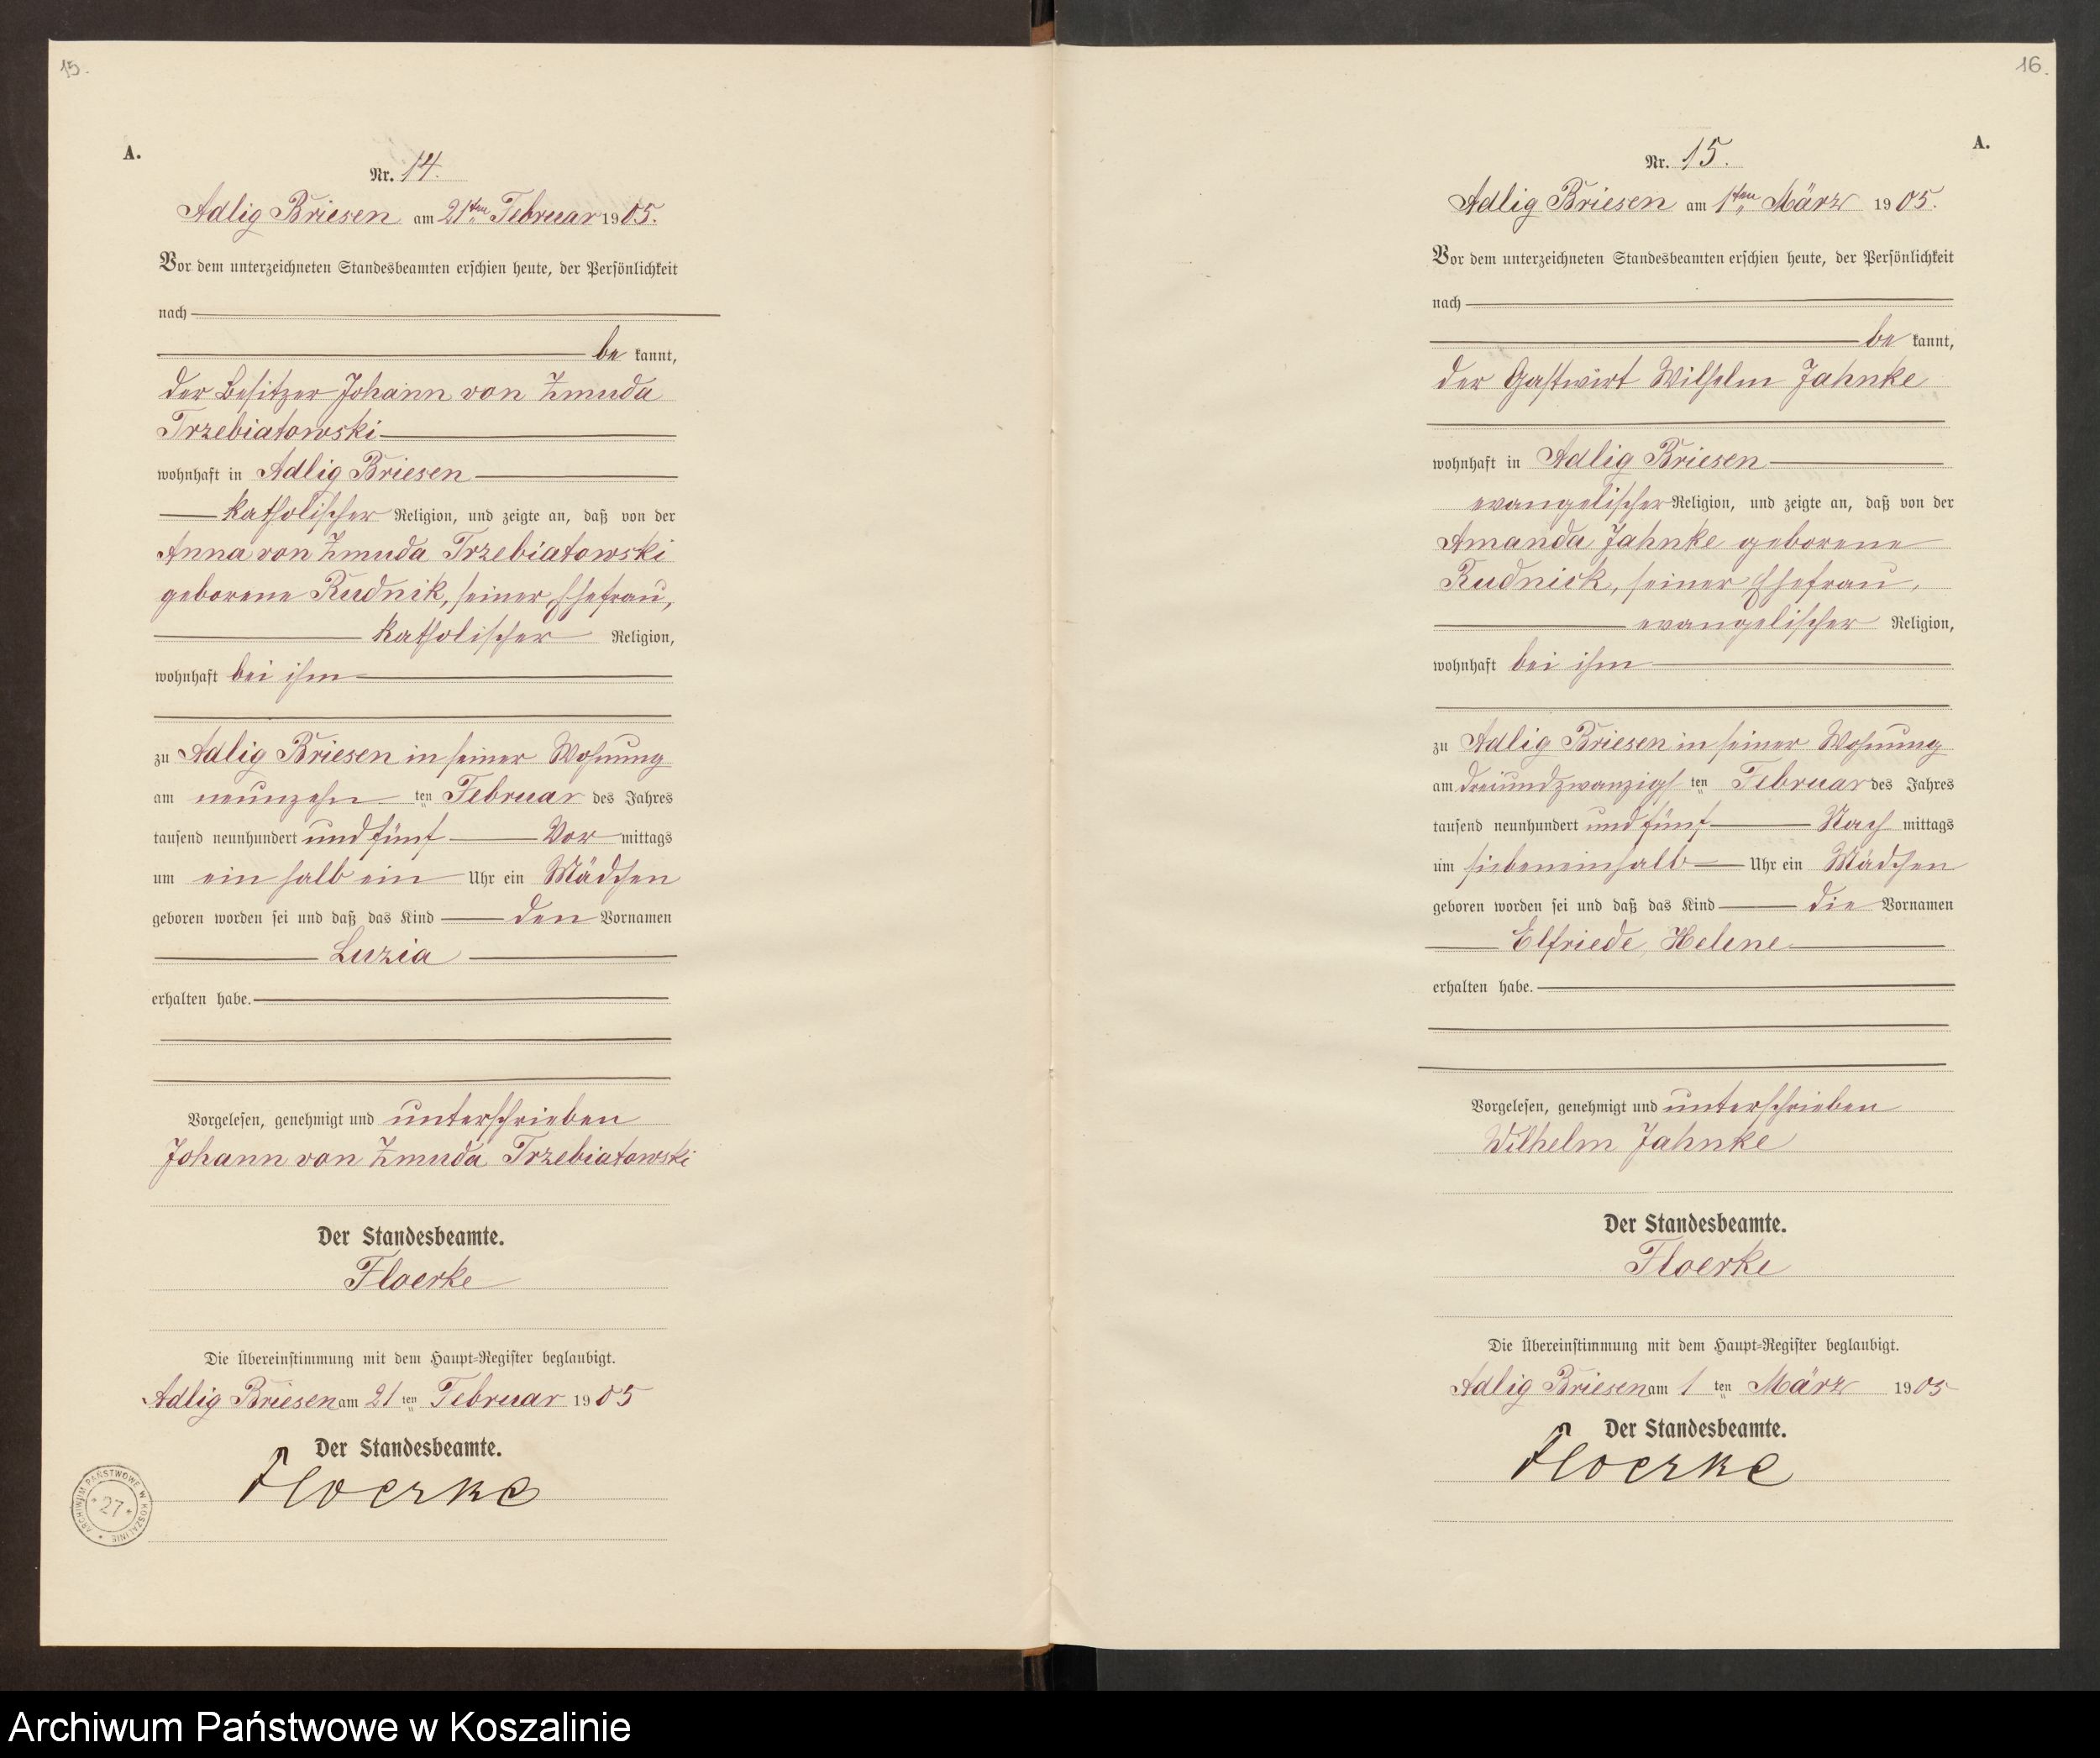 15.
A.
Nr. 14.
Adlig Briesen am 21ten Februar 1905.
Vor dem unterzeichneten Standesbeamten erschien heute, der Persönlichkeit
nach
be kannt,
der Besitzer Johann von Zmuda
Trzebiatowski
wohnhaft in Adlig Briesen
katholischer Religion, und zeigte an, daß von der
Anna von Zmuda Trzebiatowski
geborene Rudnik, seiner Ehefrau,
katholischer Religion,
wohnhaft bei ihm
zu Adlig Briesen in seiner Wohnung
am neunzehn ten Februar des Jahres
tausend neunhundert und fünf Vor mittags
um ein halb ein Uhr ein Mädchen
geboren worden sei und daß das Kind den Vornamen
Luzia
erhalten habe.
Vorgelesen, genehmigt und unterschrieben
Johann von Zmuda Trzebiatowski
Der Standesbeamte.
Floerke
Die Übereinstimmung mit dem Haupt-Register beglaubigt.
Adlig Briesen am 21 ten Februar 1905
Der Standesbeamte.
Floerke
ARCHIWUM PAŃSTWOWE W KOSZALINIE
* 27 *
16.
A.
Nr. 15.
Adlig Briesen am 1ten März 1905.
Vor dem unterzeichneten Standesbeamten erschien heute, der Persönlichkeit
nach
be kannt,
der Gastwirt Wilhelm Jahnke
wohnhaft in Adlig Briesen
evangelischer Religion, und zeigte an, daß von der
Amanda Jahnke geborene
Rudnick, seiner Ehefrau,
evangelischer Religion,
wohnhaft bei ihm
zu Adlig Briesen in seiner Wohnung
am dreiundzwanzigs ten Februar des Jahres
tausend neunhundert und fünf Nach mittags
um siebeneinhalb Uhr ein Mädchen
geboren worden sei und daß das Kind die Vornamen
Elfriede, Helene
erhalten habe.
Vorgelesen, genehmigt und unterschrieben
Wilhelm Jahnke
Der Standesbeamte.
Floerke
Die Übereinstimmung mit dem Haupt-Register beglaubigt.
Adlig Briesen am 1 ten März 1905
Der Standesbeamte.
Floerke
Archiwum Państwowe w Koszalinie